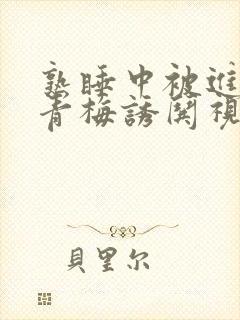 熟睡中被進
青梅誘関視
貝里尔